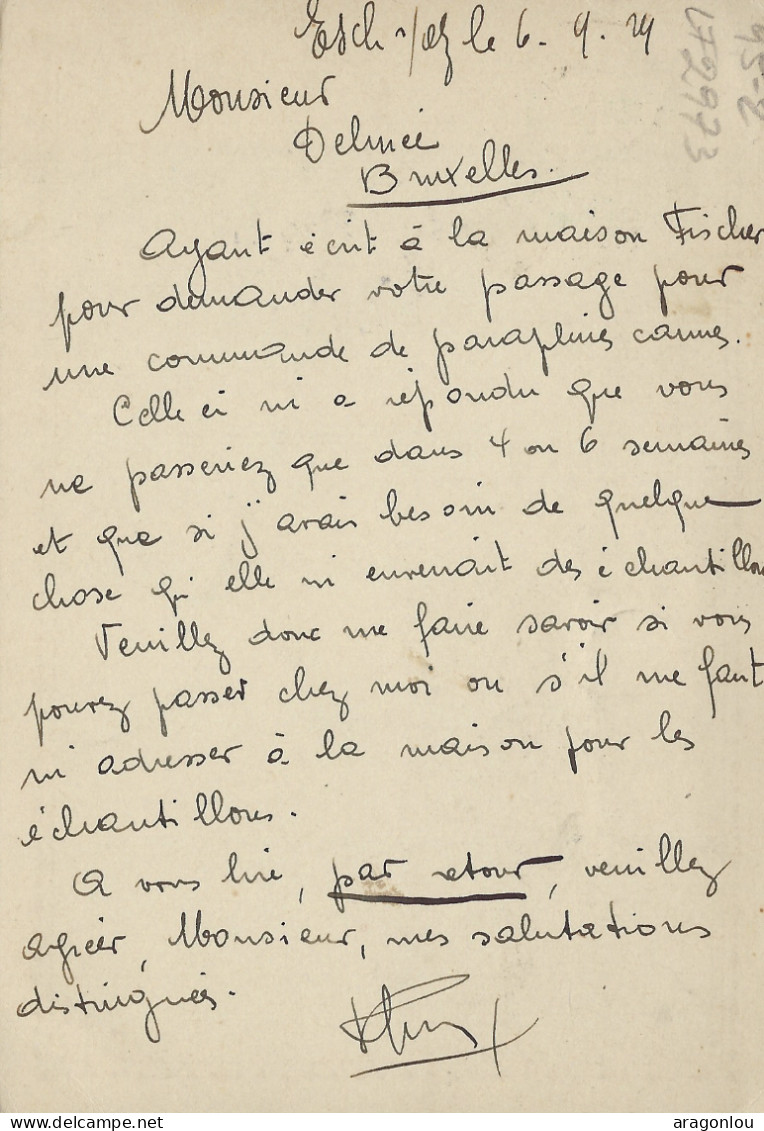 Esch s/Alz le 6. 9. 29
Monsieur
Delmée
Bruxelles.
Ayant écrit à la maison Fischer
pour demander votre passage pour
une commande de parapluies cannes.
Celle ci m'a répondu que vous
ne passeriez que dans 4 ou 6 semaines
et que si j'avais besoin de quelque
chose qu'elle m'enverrait des échantillons
Veuillez donc me faire savoir si vous
pouvez passer chez moi ou s'il me faut
m'adresser à la maison pour les
échantillons.
A vous lire, par retour, veuillez
agréer, Monsieur, mes salutations
distinguées.
95-2
LF2973
delcampe.net
aragonlou